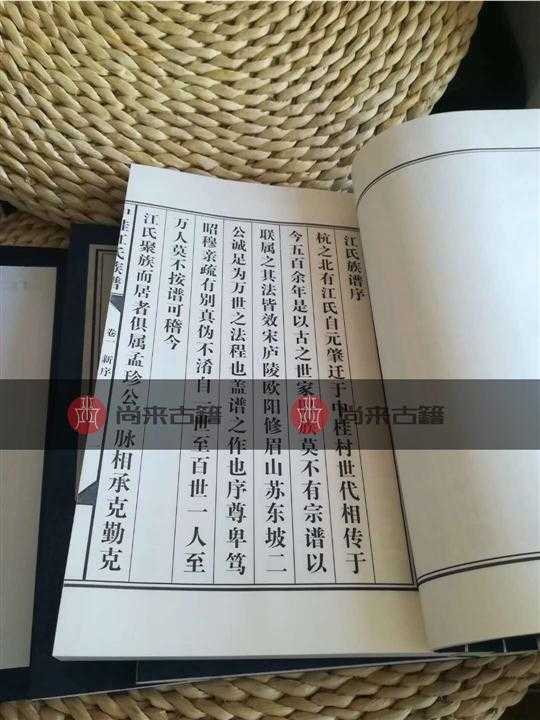 江氏族谱序
杭之北有江氏自元肇迁于中桂村世代相传于
今五百余年是以古之世家 族莫不有宗谱以
联属之其法皆效宋庐陵欧阳修眉山苏东坡二
公诚足为万世之法程也盖谱之作也序尊卑笃
昭穆亲疏有别真伪不淆自一世至百世一人至
万人莫不按谱可稽今
江氏聚族而居者俱属孟珍公 脉相承克勤克
桂江氏族谱
卷一 新序
尚来古籍
尚来古籍